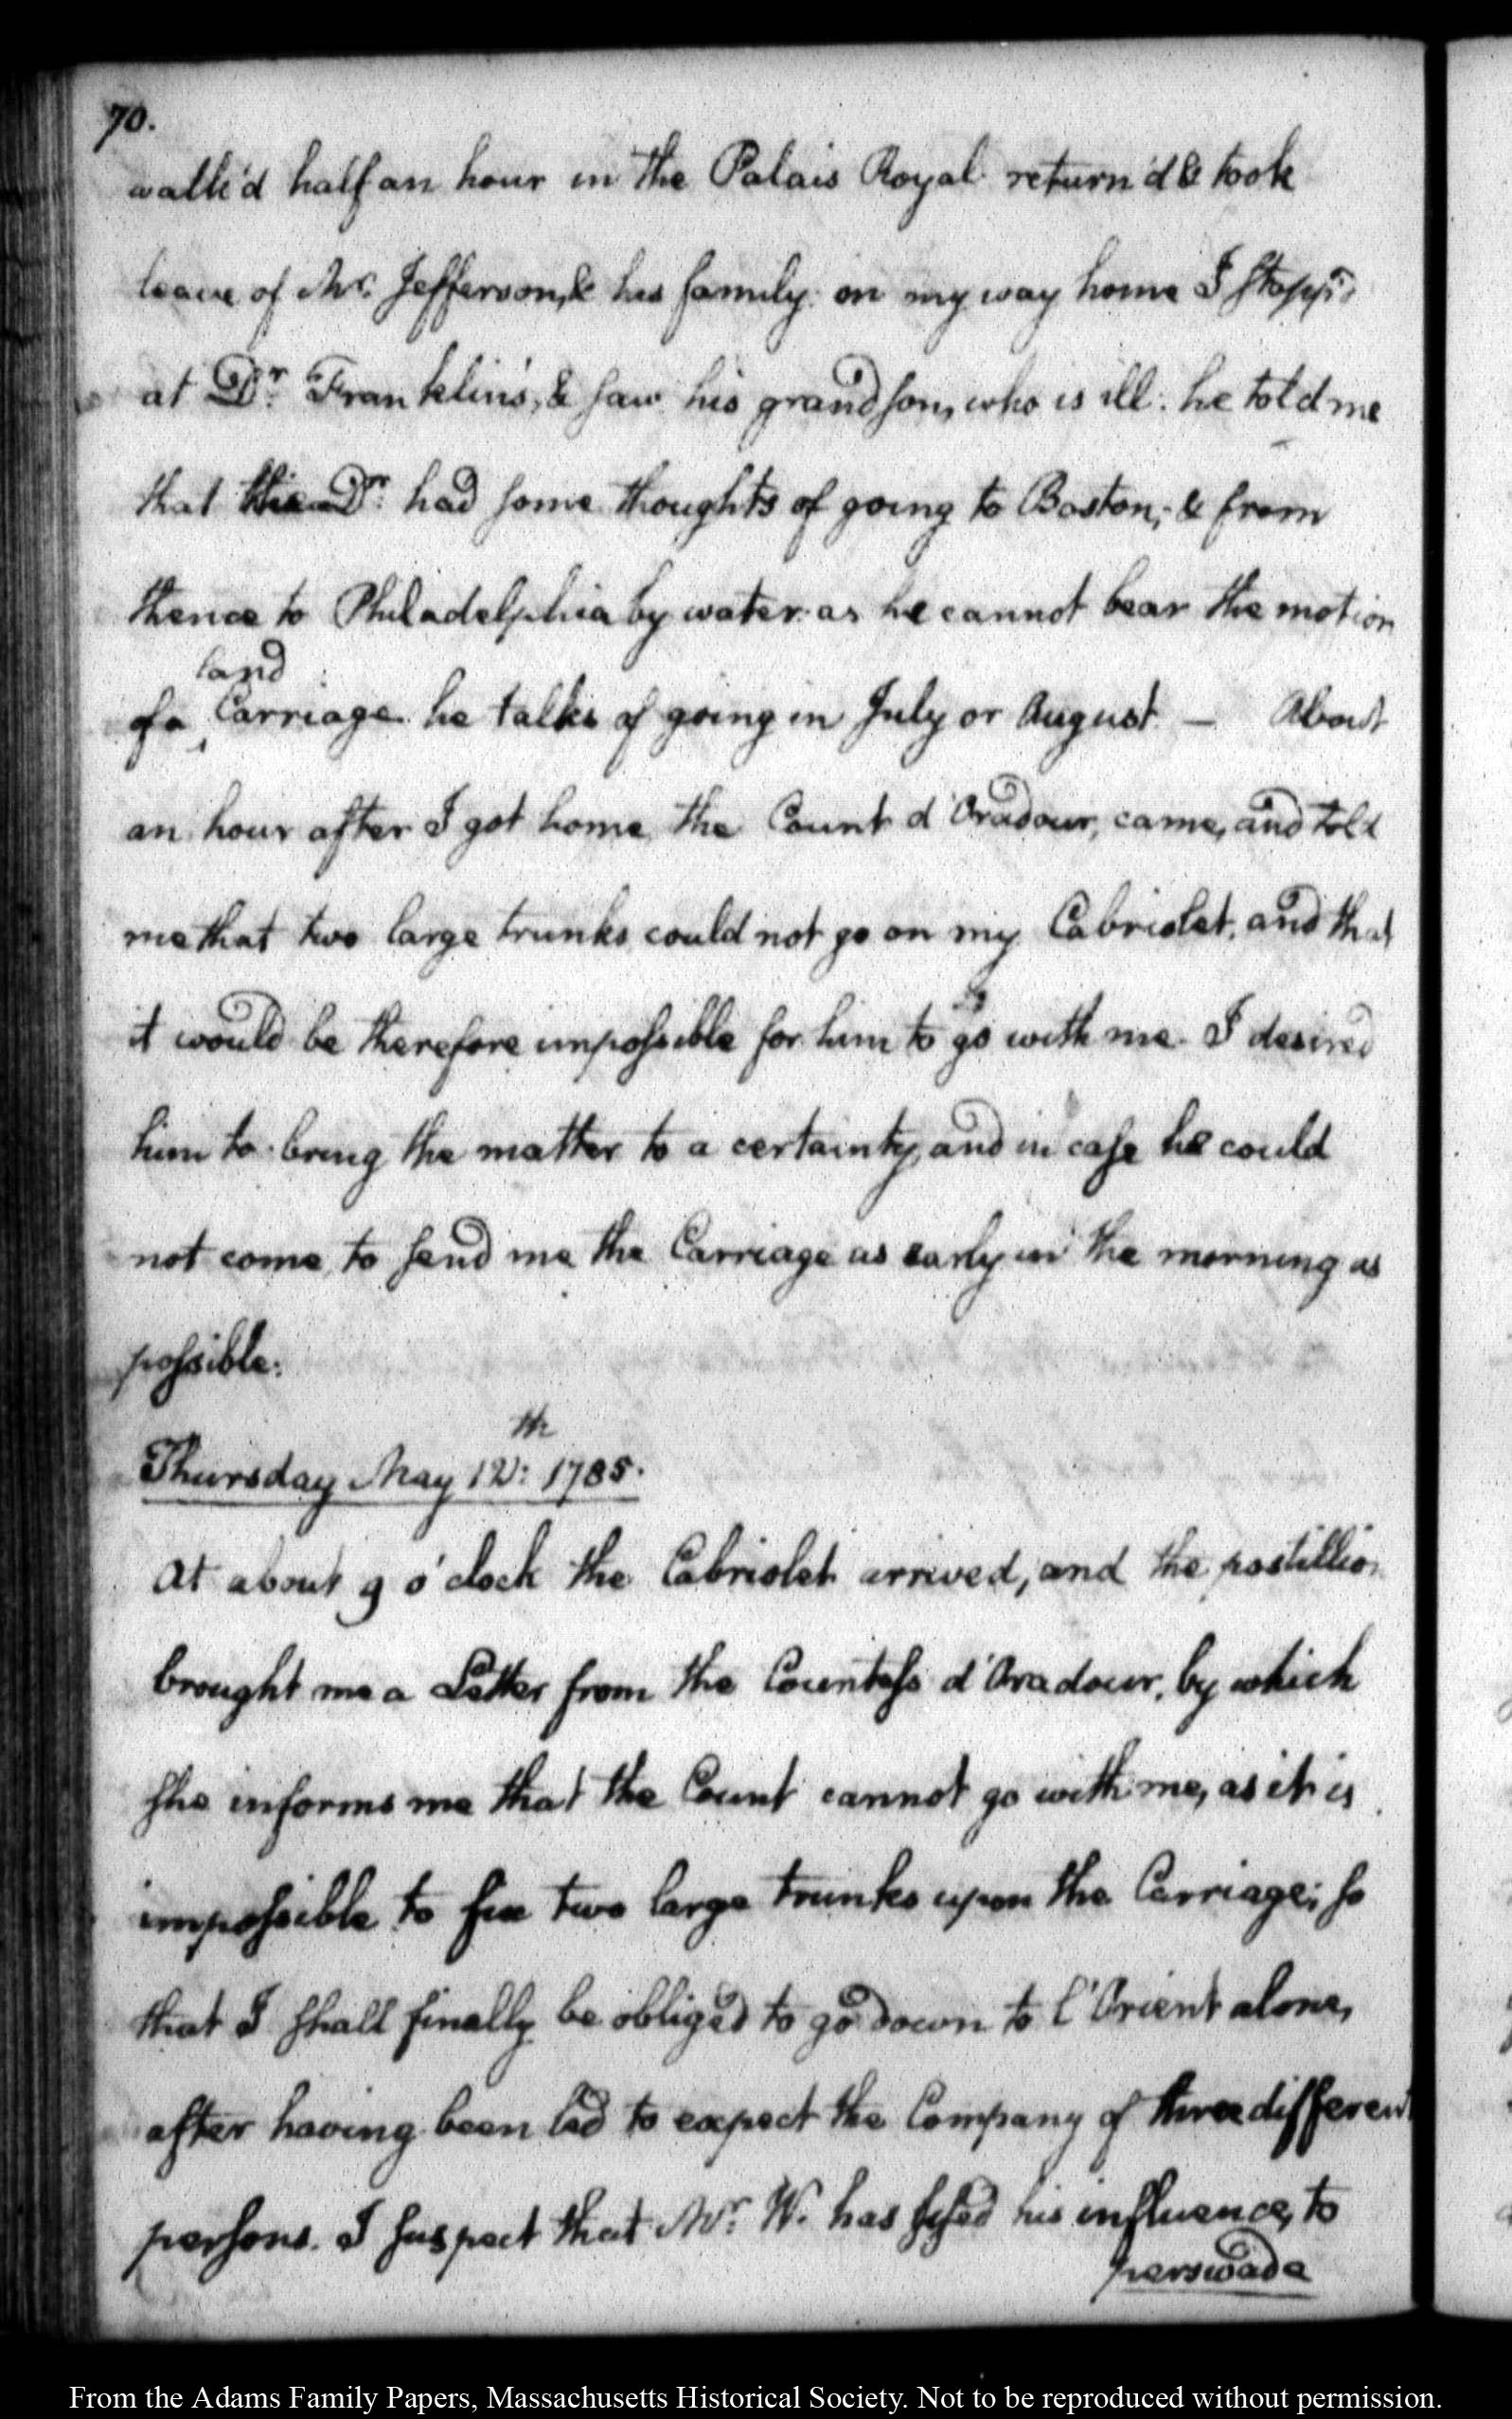 70.
walk'd half an hour in the Palais Royal return'd & took
leave of Mr. Jefferson, & his family. on my way home I stopp'd
at Dr. Franklin's, & saw his grandson, who is ill. he told me
that the Dr. had some thoughts of going to Boston; & from
thence to Philadelphia by water. as he cannot bear the motion
land
of a ‸ Carriage. he talks of going in July or August. — About
an hour after I got home, the Count d'Oradour, came, and told
me that two large trunks could not go on my Cabriolet, and that
it would be therefore impossible for him to go with me. I desired
him to bring the matter to a certainty, and in case he could
not come, to send me the Carriage as early in the morning as
possible.
Thursday May 12th: 1785.
At about 9 o'clock the Cabriolet arrived, and the postillion
brought me a Letter from the Countess d'Oradour, by which
she informs me that the Count cannot go with me, as it is
impossible to fix two large trunks upon the Carriage; so
that I shall finally be obliged to go down to l'Orient alone,
after having been led to expect the Company of three different
persons. I suspect that Mr. W. has used his influence, to
perswade
From the Adams Family Papers, Massachusetts Historical Society. Not to be reproduced without permission.